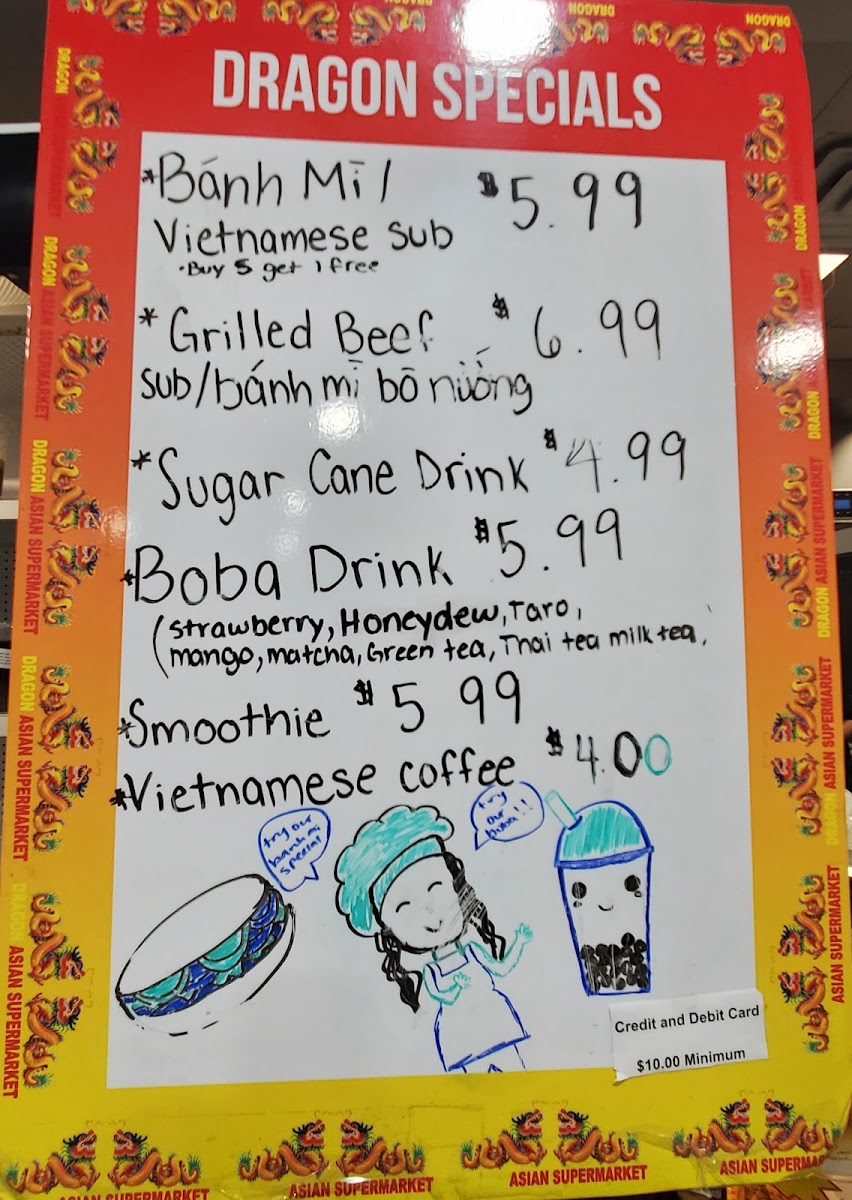 DRAGON SPECIALS
*Bánh Mī / $5.99
Vietnamese sub
• Buy 5 get 1 free
* Grilled Beef $6.99
sub/bánh mī bō nướng
* Sugar Cane Drink $4.99
*Boba Drink $5.99
(strawberry, Honeydew, Taro,
mango, matcha, Green tea, Thai tea milk tea,
*Smoothie $5 99
*Vietnamese coffee $4.00
try our
banh mi
special!
try
our
boba!!
Credit and Debit Card
$10.00 Minimum
DRAGON ASIAN SUPERMARKET
DRAGON ASIAN SUPERMARKET
DRAGON ASIAN SUPERMARKET
DRAGON ASIAN SUPERMARKET
DRAGON ASIAN SUPERMARKET
DRAGON ASIAN SUPERMARKET
ASIAN SUPERMARKET
ASIAN SUPERMARKET
ASIAN SUPERMARKET
ASIAN SUPERMARKET
ASIAN SUPERMARKET